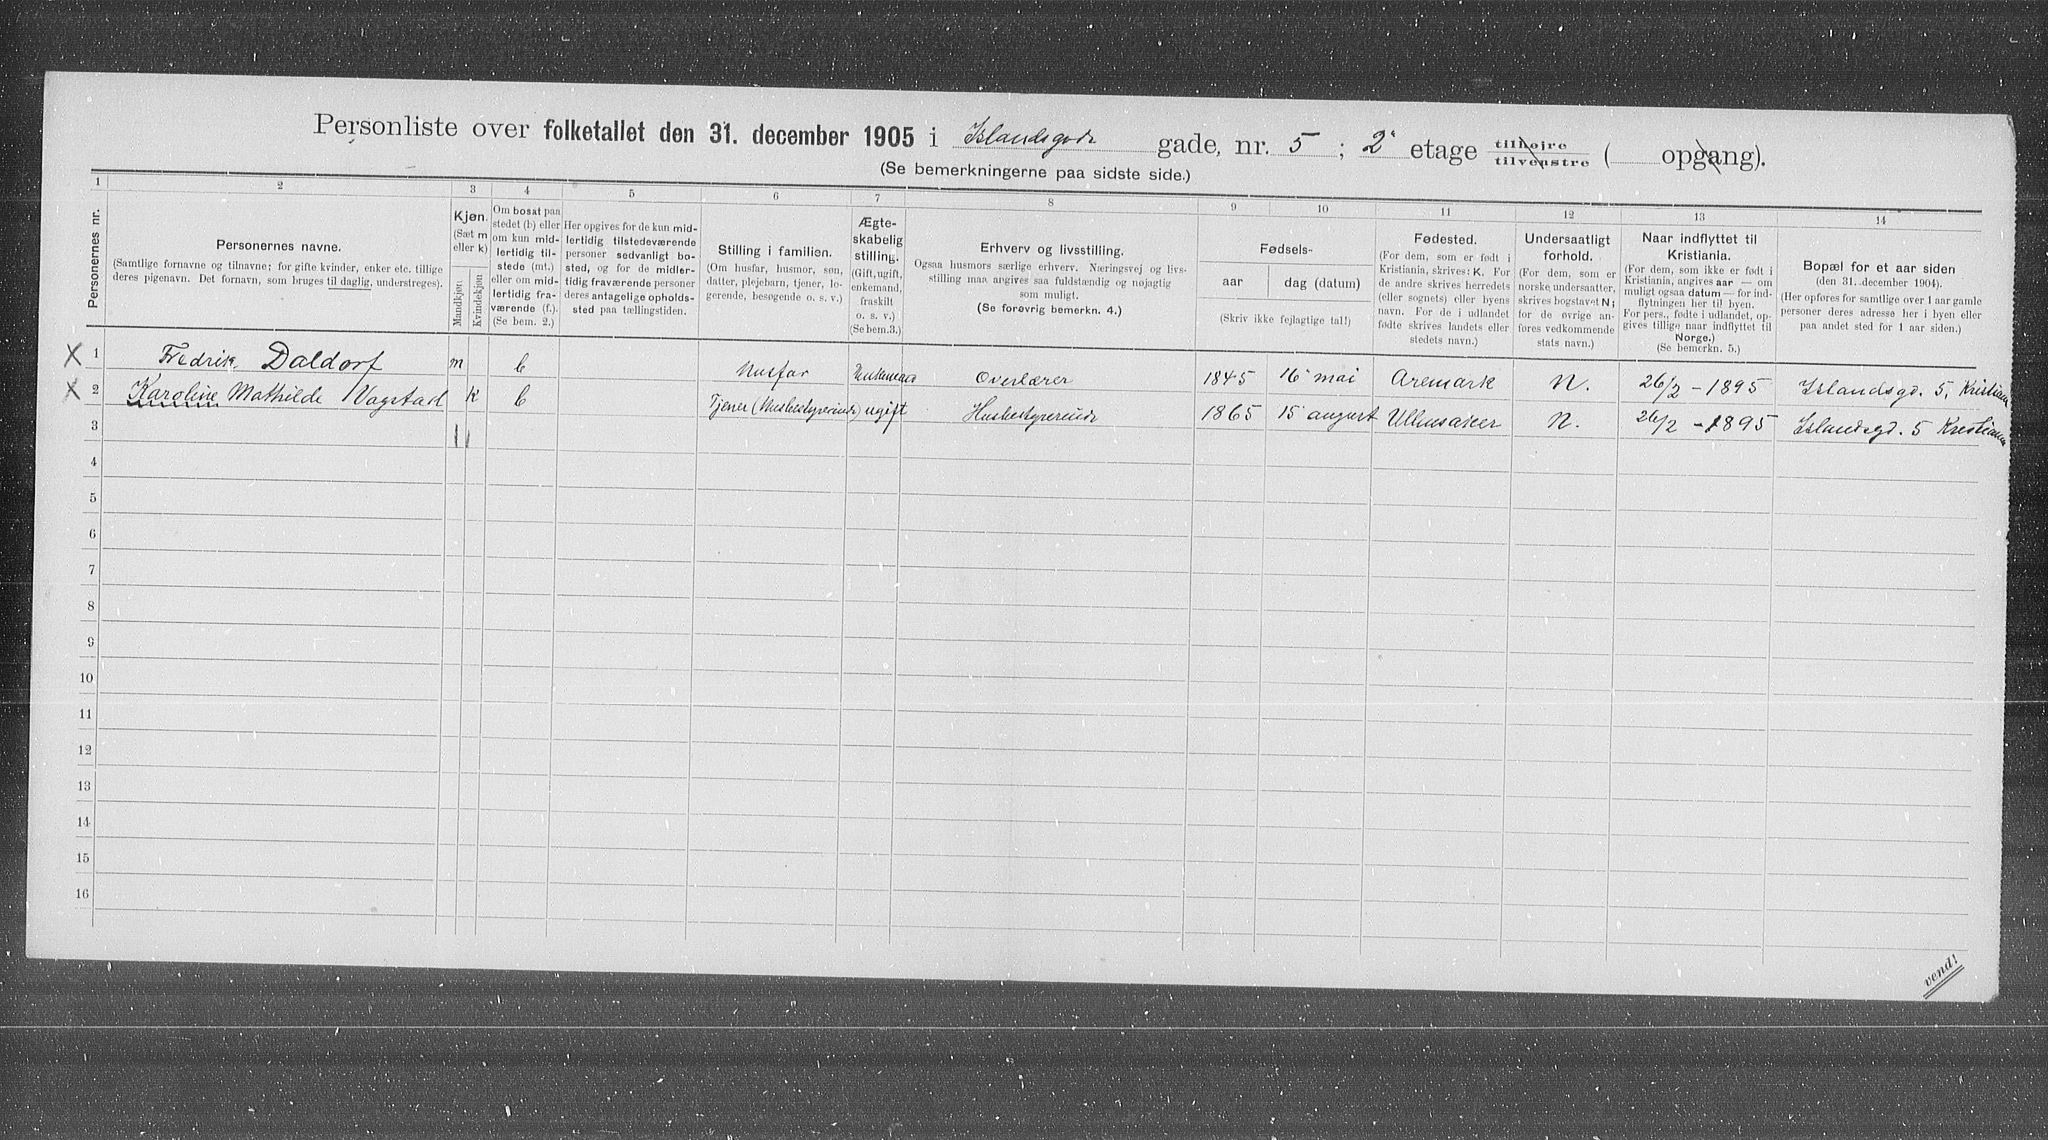 Personliste over folketallet den 31. december 1905 i Islandsgade gade, nr. 5; 2' etage tilhøjre tilvenstre ( opgang).
(Se bemerkningerne paa sidste side.)
1 2 3 4 5 6 7 8 9 10 11 12 13 14
Personernes nr.
Personernes navne.
(Samtlige fornavne og tilnavne; for gifte kvinder, enker etc. tillige
deres pigenavn. Det fornavn, som bruges til daglig, understreges).
Kjøn.
(Sæt m
eller k)
Mandkjøn
Kvindekjøn
Om bosat paa
stedet (b) eller
om kun mid-
lertidig til-
stede (mt.)
eller om mid-
lertidig fra-
værende (f.).
(Se bem. 2.)
Her opgives for de kun mid-
lertidig tilstedeværende
personer sedvanligt bo-
sted, og for de midler-
tidig fraværende personer
deres antagelige opholds-
sted paa tællingstiden.
Stilling i familien.
(Om husfar, husmor, søn,
datter, plejebarn, tjener, lo-
gerende, besøgende o. s. v.)
Ægte-
skabelig
stilling.
(Gift, ugift,
enkemand,
fraskilt
o. s. v.)
(Se bem. 3.)
Erhverv og livsstilling.
Ogsaa husmors særlige erhverv. Næringsvej og livs-
stilling maa angives saa fuldstændig og nøjagtig
som muligt.
(Se forøvrig bemerkn. 4.)
Fødsels-
aar
dag (datum)
(Skriv ikke fejlagtige tal!)
Fødested.
(For dem, som er født i
Kristiania, skrives: K. For
de andre skrives herredets
(eller sognets) eller byens
navn. For de i udlandet
fødte skrives landets eller
stedets navn.)
Undersaatligt
forhold.
(For dem, som er
norske undersaatter,
skrives bogstavet N;
for de øvrige an-
føres vedkommende
stats navn.)
Naar indflyttet til
Kristiania.
(For dem, som ikke er født i
Kristiania, angives aar — om
muligt ogsaa datum — for ind-
flytningen her til byen.
For pers., fødte i udlandet, op-
gives tillige naar indflyttet til
Norge.)
(Se bemerkn. 5.)
Bopæl for et aar siden
(den 31. december 1904).
(Her opføres for samtlige over 1 aar gamle
personer deres adresse her i byen eller
paa andet sted for 1 aar siden.)
X 1 Fredrik Daldorf m b Husfar Enkemand Overlærer 1845 16 mai Aremark N. 26/2 - 1895 Islandsgd. 5, Kristiania
X 2 Karoline Mathilde Vagstad k b Tjener (Husbestyrerinde) ugift Husbestyrerinde 1865 15 august Ullensaker N. 26/2 - 1895 Islandsgd. 5 Kristiania
3
4
5
6
7
8
9
10
11
12
13
14
15
16
vend!